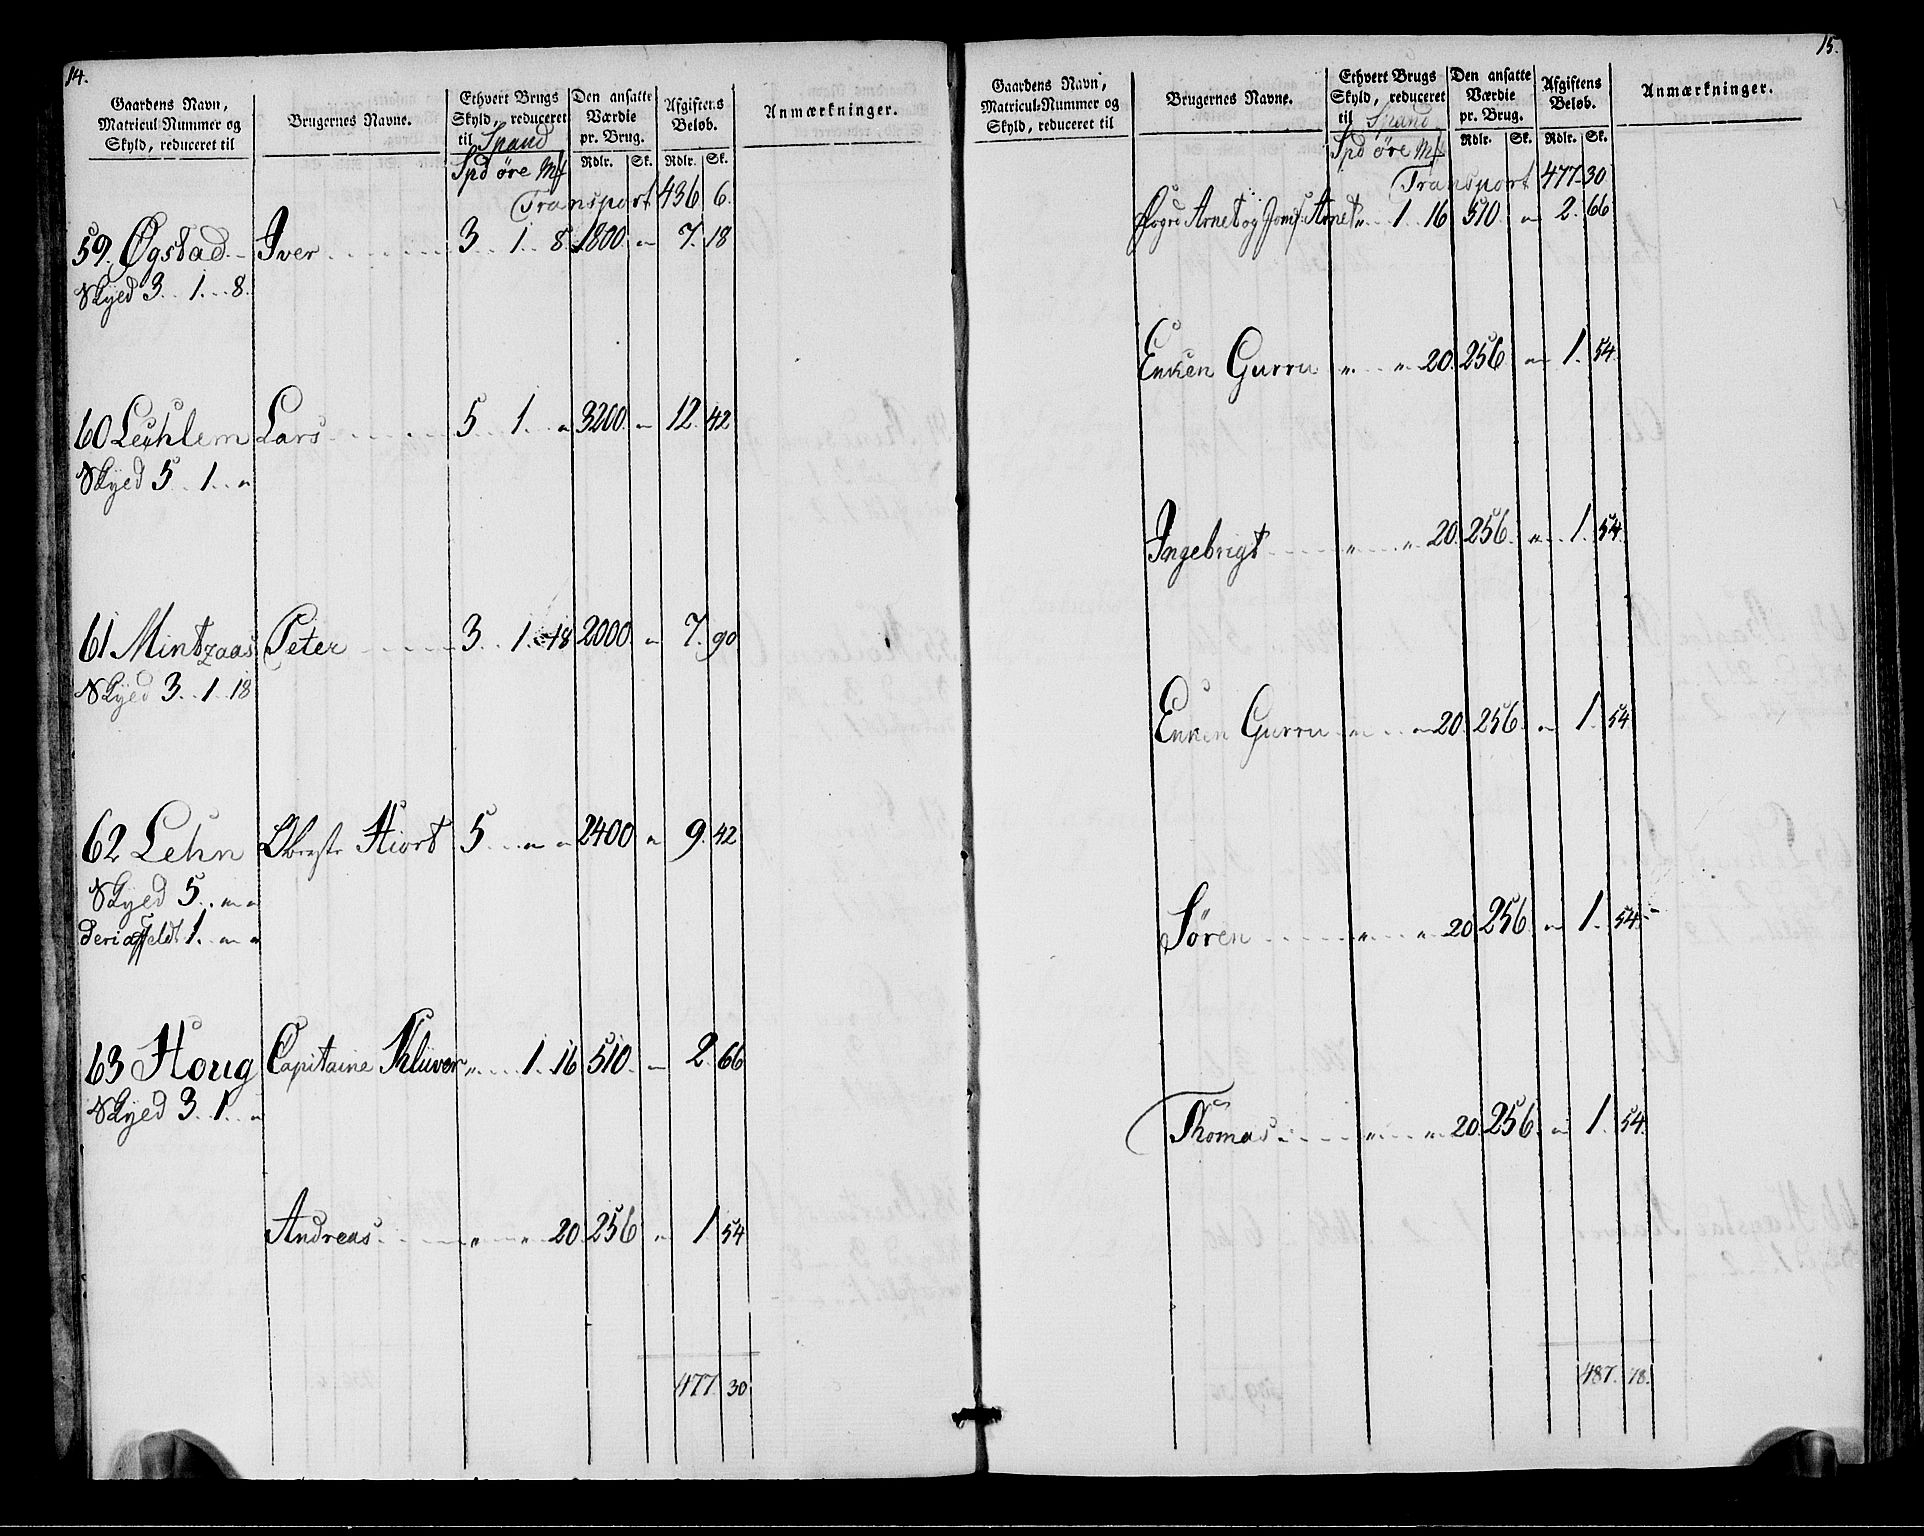 14.
Gaardens Navn, Matricul-Nummer og Skyld, reduceret til
Brugernes Navne.
Ethvert Brugs Skyld, reduceret til Spand
Den ansatte Værdie pr. Brug.
Afgiftens Beløb.
Anmærkninger.
Spd øre Mk Rdlr. Sk. Rdlr. Sk.
Transport 436 6.
59. Øgstad Iver 3 1 8. 1800 " 7. 18
Skyed 3. 1. 8.
60 Leuhlem Lars 5 1. " 3200 " 12. 42
Skyed 5. 1. "
61 Mintzaas Peter 3. 1. 18 2000 " 7. 90
Skyed 3. 1. 18
62 Lehn Obreste Hiort 5 " " 2400 " 9. 42
Skyed 5. " "
63 Houg Capitaine Klüver " 1. 16 510 " 2. 66
Skyed 3. 1. "
Andreas " " 20 256 " 1 54
477. 30
15.
Gaardens Navn, Matricul-Nummer og Skyld, reduceret til
Brugernes Navne.
Ethvert Brugs Skyld, reduceret til Spand
Den ansatte Værdie pr. Brug.
Afgiftens Beløb.
Anmærkninger.
Spd øre Mk Rdlr. Sk. Rdlr. Sk.
Transport 477 30
Arnt og Arnet " 1 16 510 " 2. 66
Enken Gurru " " 20. 256 " 1. 54.
Ingebrigt " " 20. 256 " 1. 54.
Enken Gurru " " 20 256 " 1. 54
Søren " " 20 256 " 1. 54.
Thomas " " 20. 256 " 1. 54.
487. 18.